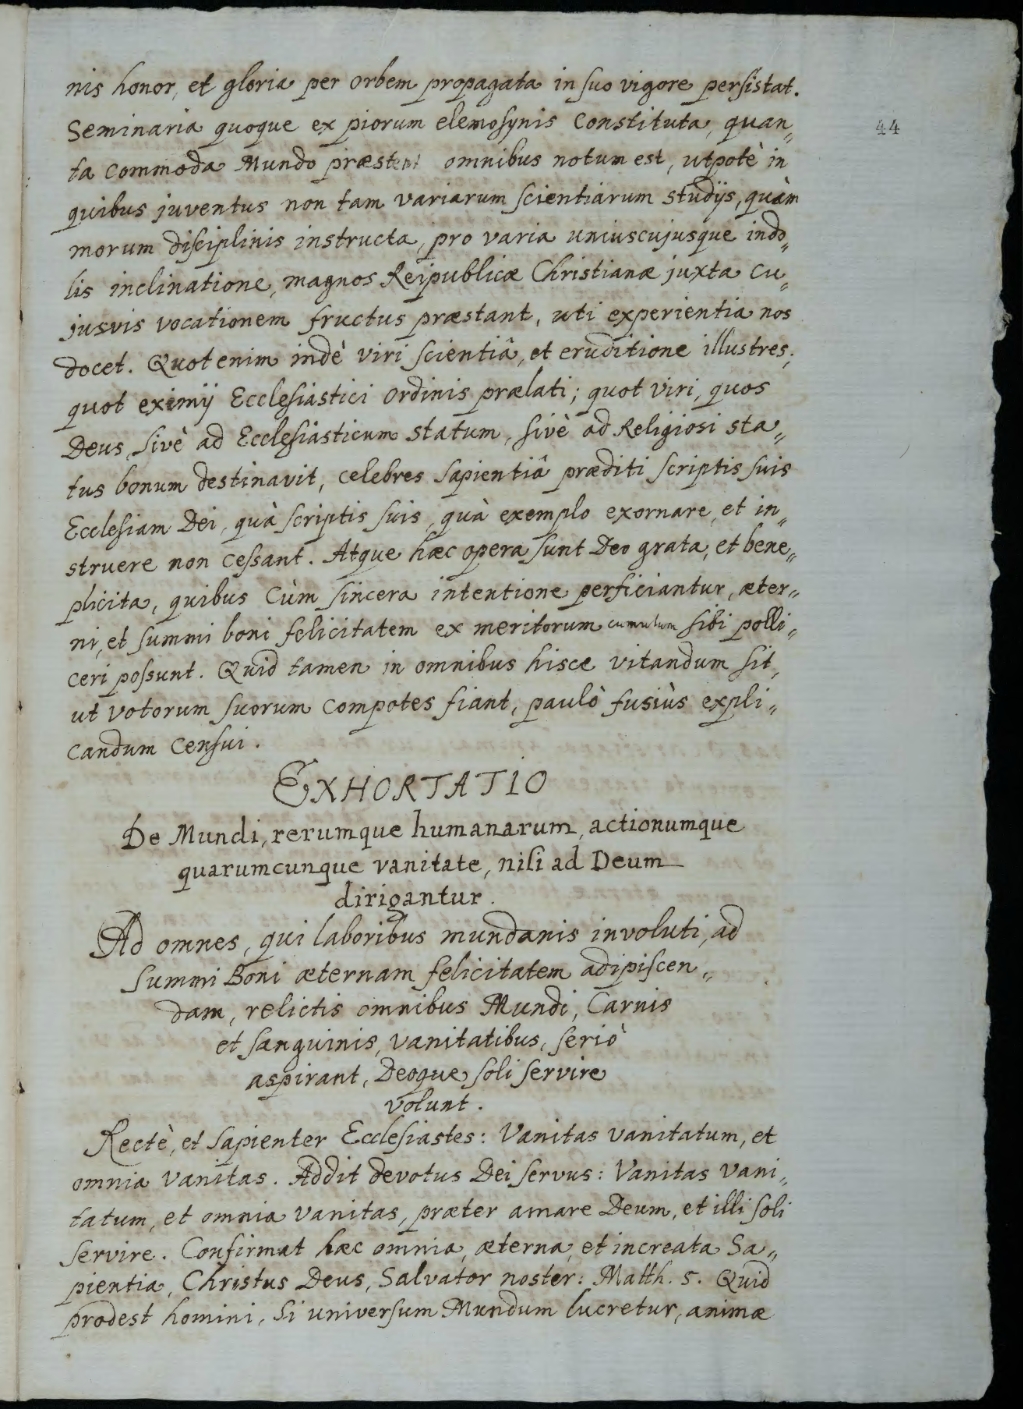 nis honor, et gloria per orbem propagata in suo vigore persistat.
44
Seminaria quoque ex piorum elemosynis constituta, quan„
ta commoda Mundo præstent omnibus notum est, utpotè in
quibus juventus non tam variarum scientiarum studijs, quàm
morum disciplinis instructa, pro varia uniuscujusque indo„
lis inclinatione, magnos Reipublicæ Christianæ juxta cu„
jusvis vocationem fructus præstant, uti experientia nos
docet. Quot enim indè viri scientiâ, et eruditione illustres;
quot eximij Ecclesiastici ordinis prælati; quot viri, quos
Deus, sivè ad Ecclesiasticum statum, sivè ad Religiosi sta„
tus bonum destinavit, celebres sapientiâ præditi scriptis suis
Ecclesiam Dei, quà scriptis suis, quà exemplo exornare, et in„
struere non cessant. Atque hæc opera sunt Deo grata, et bene„
plicita, quibus cùm sincera intentione perficiantur, æter„
ni, et summi boni felicitatem ex meritorum cumulum sibi polli„
ceri possunt. Quid tamen in omnibus hisce vitandum sit,
ut votorum suorum compotes fiant, paulò fusiùs expli„
candum censui.
EXHORTATIO
De Mundi, rerumque humanarum, actionumque
quarumcunque vanitate, nisi ad Deum
dirigantur.
Ad omnes, qui laboribus mundanis involuti, ad
Summi Boni æternam felicitatem adipiscen„
dam, relictis omnibus Mundi, Carnis
et sanguinis, vanitatibus, seriò
aspirant, Deoque soli servire
volunt.
Rectè, et sapienter Ecclesiastes: Vanitas vanitatum, et
omnia vanitas. Addit devotus Dei servus: Vanitas vani„
tatum, et omnia vanitas, præter amare Deum, et illi soli
servire. Confirmat hæc omnia, æterna, et increata Sa„
pientia, Christus Deus, Salvator noster: Matth. 5. Quid
prodest homini, si universum Mundum lucretur, animæ